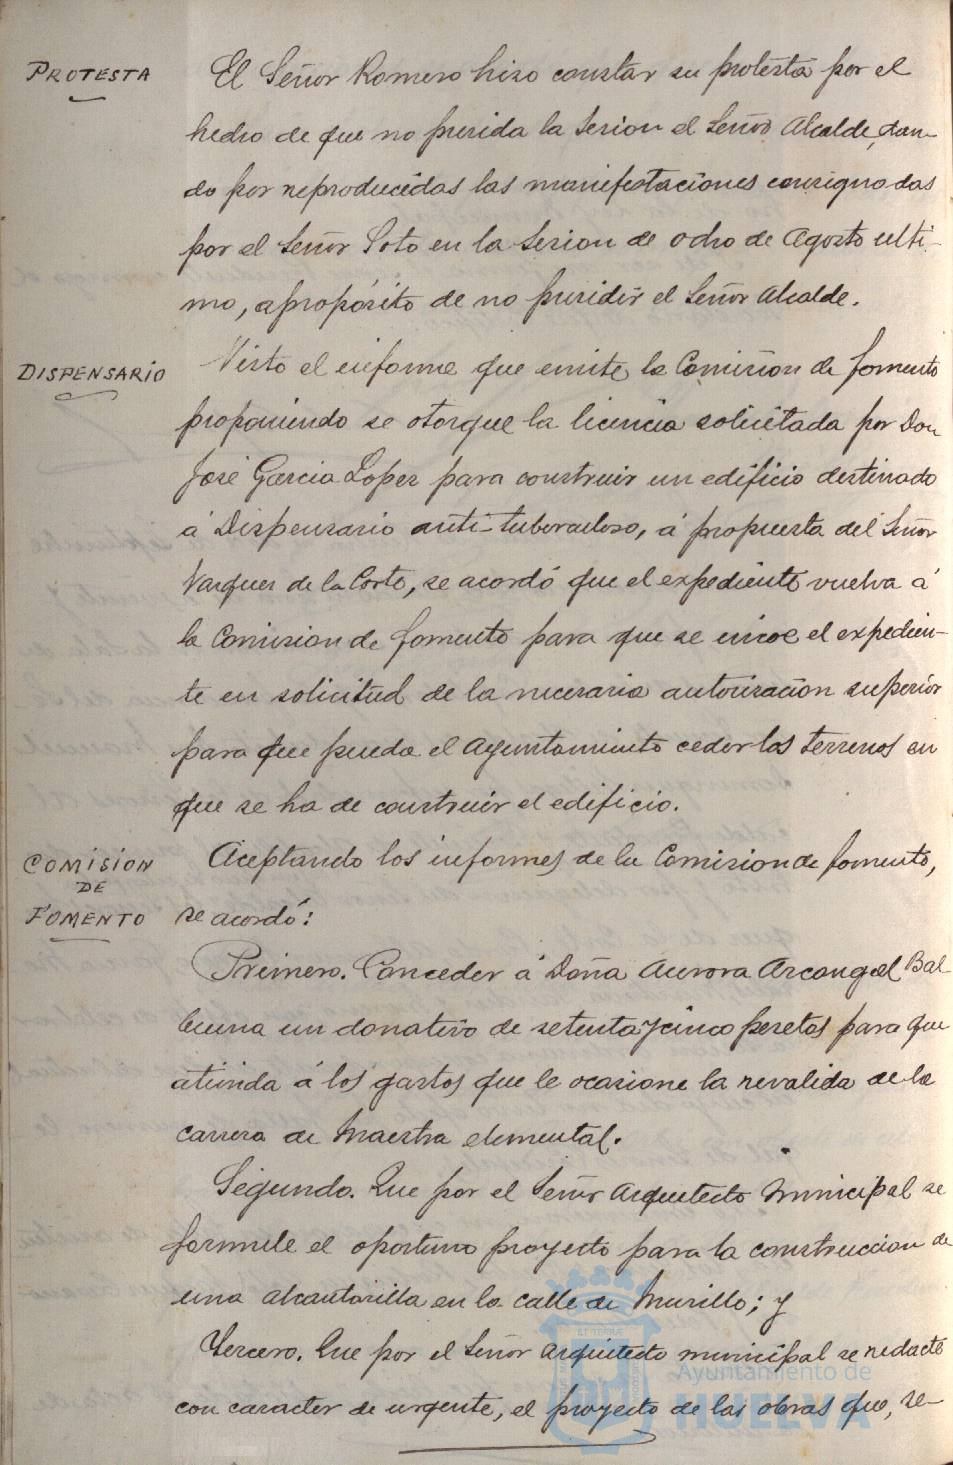 PROTESTA
El Señor Romero hizo constar su protesta por el
hecho de que no presida la Sesion el Señor Alcalde, dan-
do por reproducidas las manifestaciones consignadas
por el Señor Soto en la Sesion de ocho de Agosto ulti-
mo, apropósito de no presidir el Señor Alcalde.
DISPENSARIO
Visto el informe que emite la Comision de fomento
proponiendo se otorgue la licencia solicitada por Don
José Garcia Lopez para construir un edificio destinado
á Dispensario anti-tuberculoso, á propuesta del Señor
Vazquez de la Corte, se acordó que el expediente vuelva á
la Comision de fomento para que se incoe el expedien-
te en solicitud de la necesaria autorizacion superior
para que pueda el Ayuntamiento ceder los terrenos en
que se ha de construir el edificio.
COMISION
DE
FOMENTO
Aceptando los informes de la Comision de fomento,
se acordó:
Primero. Conceder á Doña Aurora Arcangel Bal-
buena un donativo de setenta y cinco pesetas para que
atienda á los gastos que le ocasione la revalida de la
carrera de Maestra elemental.
Segundo. Que por el Señor Arquitecto Municipal se
formule el oportuno proyecto para la construccion de
una alcantarilla en la calle de Murillo; y
Tercero. Que por el Señor Arquitecto municipal se redacte
con caracter de urgente, el proyecto de las obras que, se-
Ayuntamiento de
HUELVA